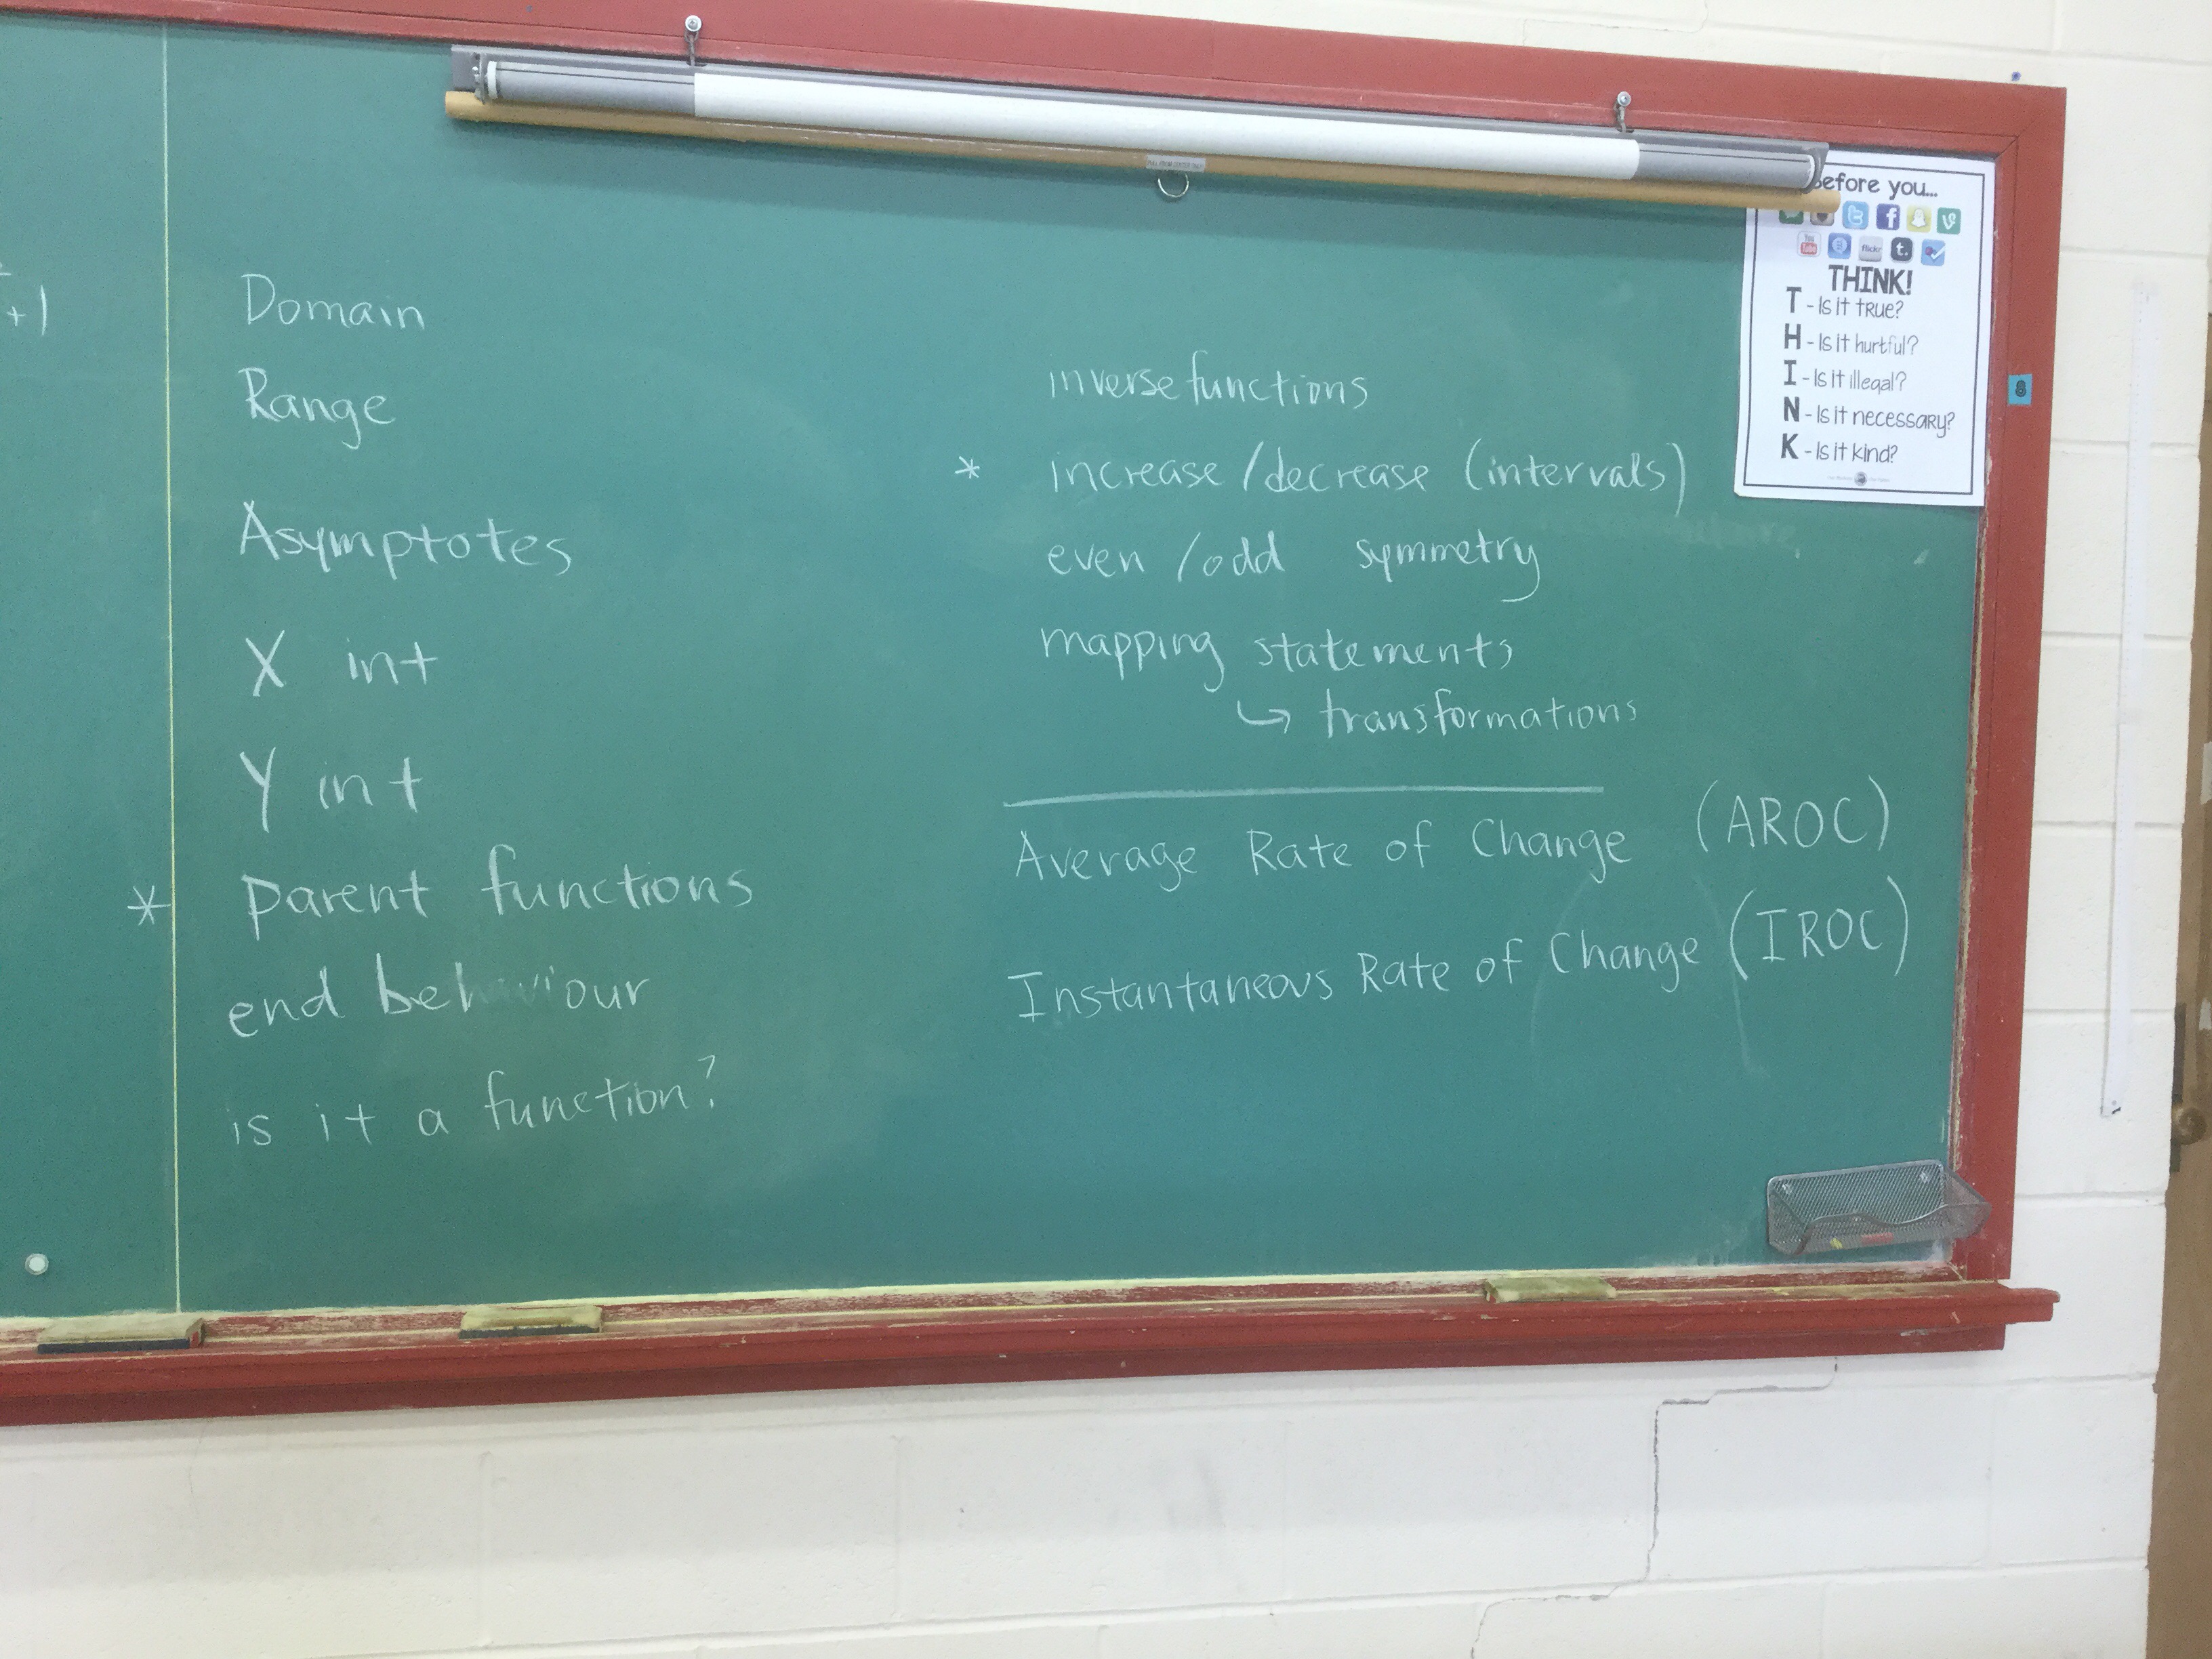 +1
Domain
Range
Asymptotes
X int
Y int
* Parent functions
end behaviour
is it a function?
inverse functions
* increase/decrease (intervals)
even/odd symmetry
mapping statements
↳ transformations
Average Rate of Change (AROC)
Instantaneous Rate of Change (IROC)
Before you...
You Tube
flickr
THINK!
T - Is it TRUE?
H - Is it hurtful?
I - Is it illegal?
N - Is it necessary?
K - Is it kind?
8